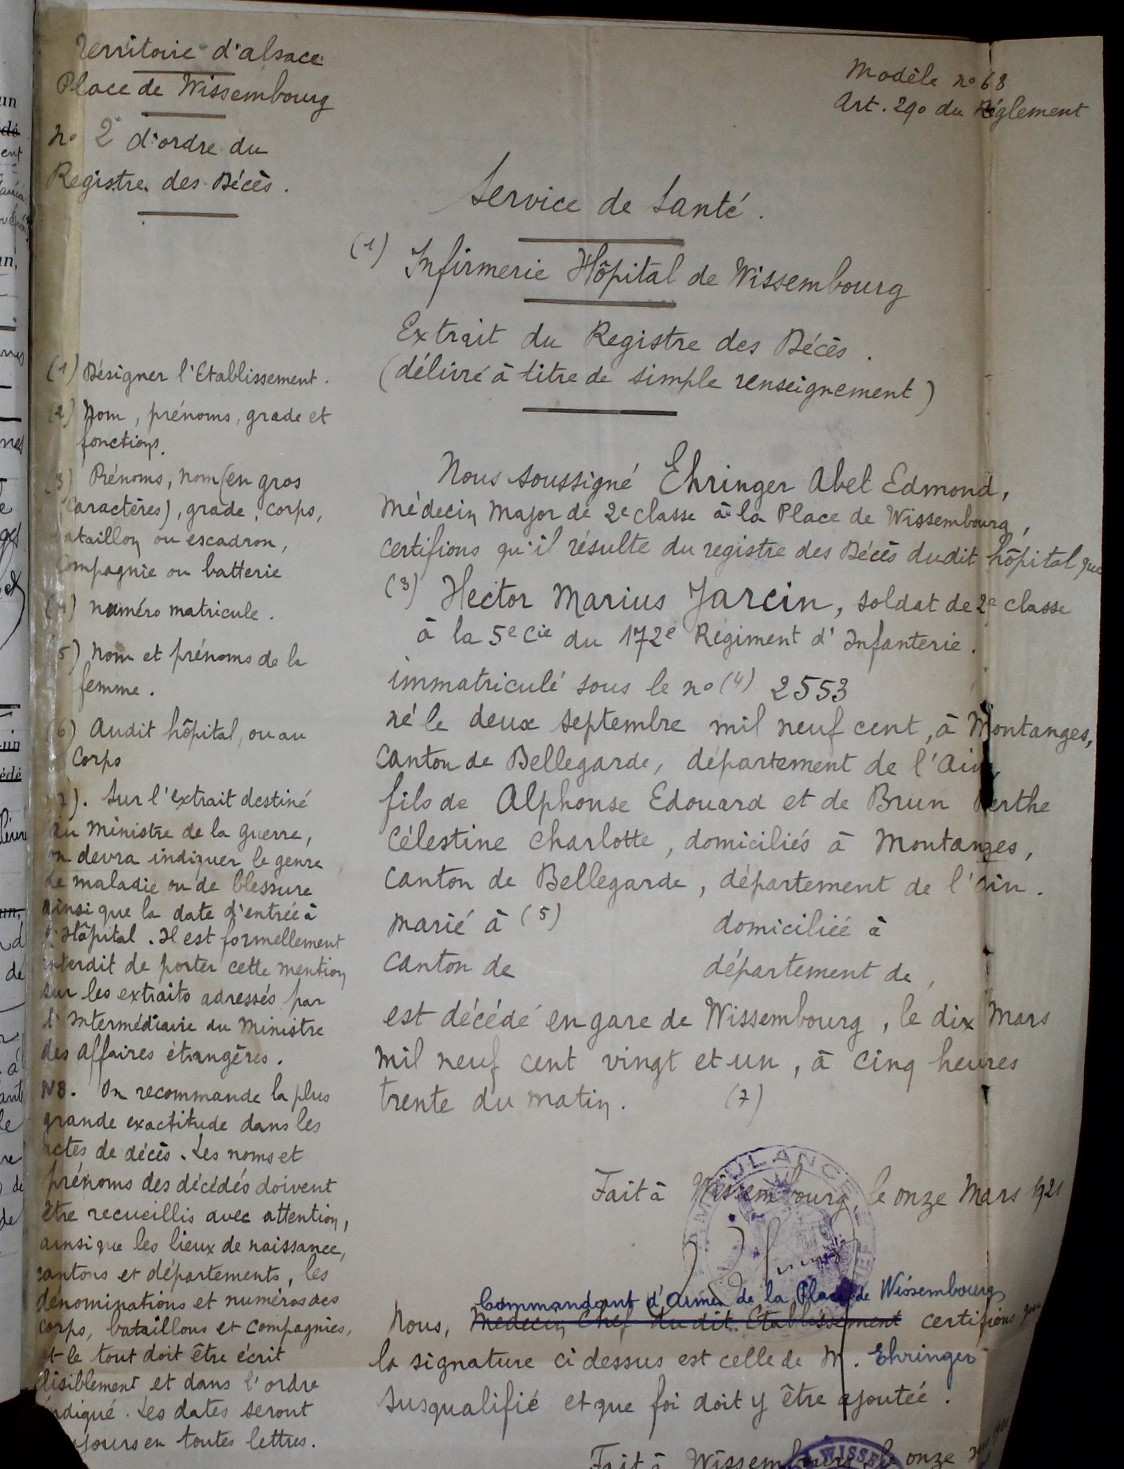 Territoire d'alsace
Place de Wissembourg
no 2 d'ordre du
Registre des Décès.
Modèle no 68
Art. 290 du Réglement
Service de Santé.
(1) Infirmerie Hôpital de Wissembourg
Extrait du Registre des Décès.
(délivré à titre de simple renseignement)
(1) Désigner l'Etablissement.
(2) Nom, prénoms, grade et
fonctions.
(3) Prénoms, nom (en gros
caractères), grade, corps,
bataillon ou escadron,
compagnie ou batterie
(4) numéro matricule.
(5) Nom et prénoms de la
femme.
(6) Audit hôpital, ou au
Corps
(7). Sur l'extrait destiné
au Ministre de la guerre,
on devra indiquer le genre
de maladie ou de blessure
ainsi que la date d'entrée à
l'Hôpital. Il est formellement
interdit de porter cette mention
sur les extraits adressés par
l'Intermédiaire du Ministre
des affaires étrangères.
NB. On recommande la plus
grande exactitude dans les
actes de décès. Les noms et
prénoms des décédés doivent
être recueillis avec attention,
ainsi que les lieux de naissance,
cantons et départements, les
dénominations et numéros des
corps, bataillons et Compagnies,
et le tout doit être écrit
lisiblement et dans l'ordre
indiqué. Les dates seront
toujours en toutes lettres.
Nous soussigné Ehringer Abel Edmond,
Médecin Major de 2e classe à la Place de Wissembourg,
certifions qu'il résulte du registre des Décès dudit hôpital que
(3) Hector Marius Jarcin, soldat de 2e classe
à la 5e Cie du 172e Régiment d'Infanterie.
immatriculé sous le no (4) 2553
né le deux septembre mil neuf cent, à Montanges,
Canton de Bellegarde, département de l'Ain,
fils de Alphonse Edouard et de Brun Berthe
Célestine Charlotte, domiciliés à Montanges,
Canton de Bellegarde, département de l'Ain.
marié à (5) domiciliée à
Canton de département de,
est décédé en gare de Wissembourg, le dix Mars
mil neuf cent vingt et un, à cinq heures
trente du matin. (7)
Fait à Wissembourg, le onze Mars 1921
AMBULANCE
Commandant d'Armes de la Place de Wissembourg
Nous, Médecin Chef dudit Etablissement certifions que
la signature ci dessus est celle de M. Ehringer
susqualifié et que foi doit y être ajoutée.
Fait à Wissembourg, le onze
WISSE